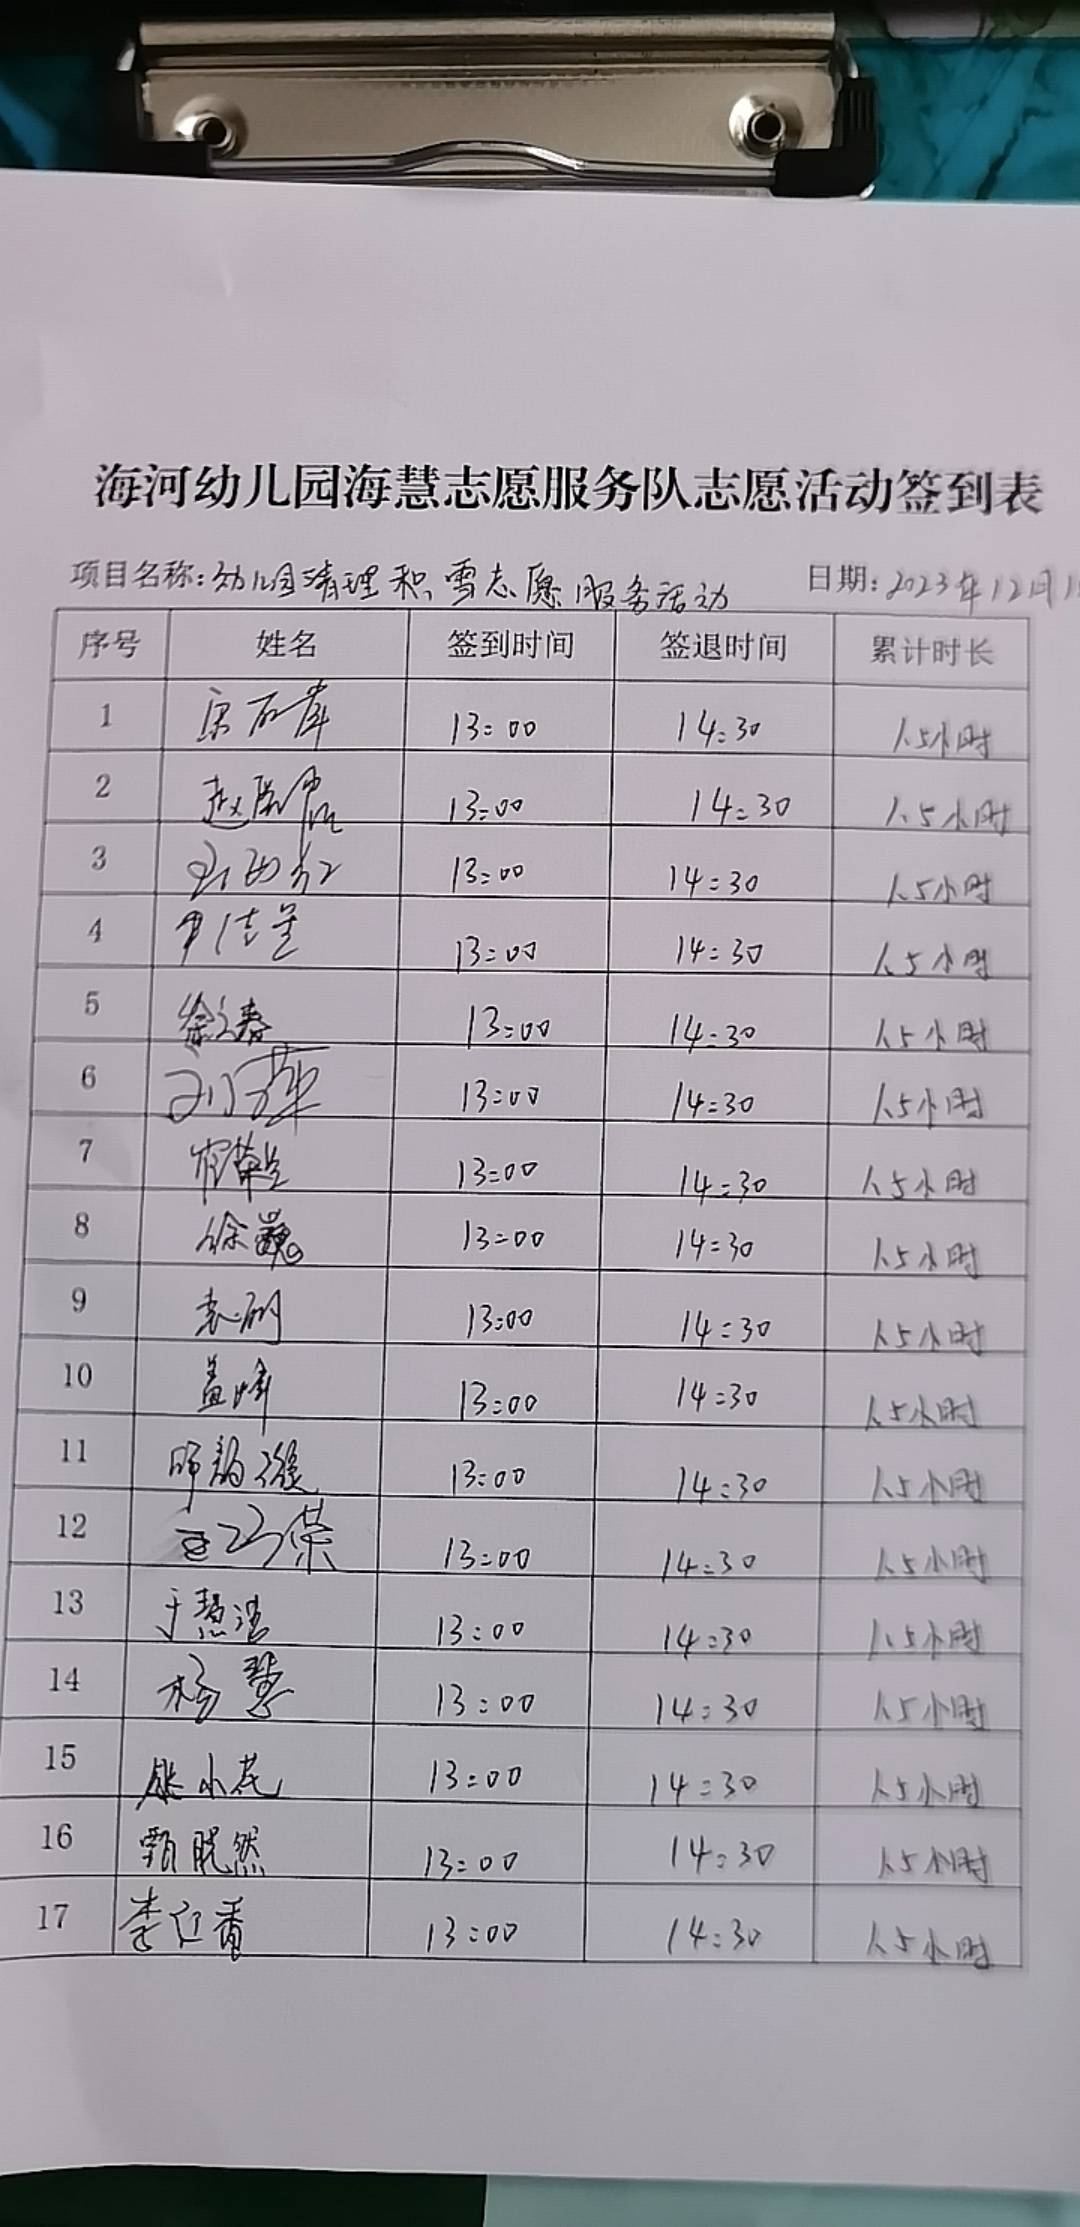 海河幼儿园海慧志愿服务队志愿活动签到表
项目名称:幼儿园清理积雪志愿服务活动 日期:2023年12月1
序号 姓名 签到时间 签退时间 累计时长
1 13:00 14:30 1.5小时
2 13:00 14:30 1.5小时
3 13:00 14:30 1.5小时
4 13:00 14:30 1.5小时
5 13:00 14:30 1.5小时
6 13:00 14:30 1.5小时
7 13:00 14:30 1.5小时
8 徐巍 13:00 14:30 1.5小时
9 袁丽 13:00 14:30 1.5小时
10 盖峰 13:00 14:30 1.5小时
11 13:00 14:30 1.5小时
12 13:00 14:30 1.5小时
13 于慧洁 13:00 14:30 1.5小时
14 杨慧 13:00 14:30 1.5小时
15 13:00 14:30 1.5小时
16 甄晓然 13:00 14:30 1.5小时
17 13:00 14:30 1.5小时